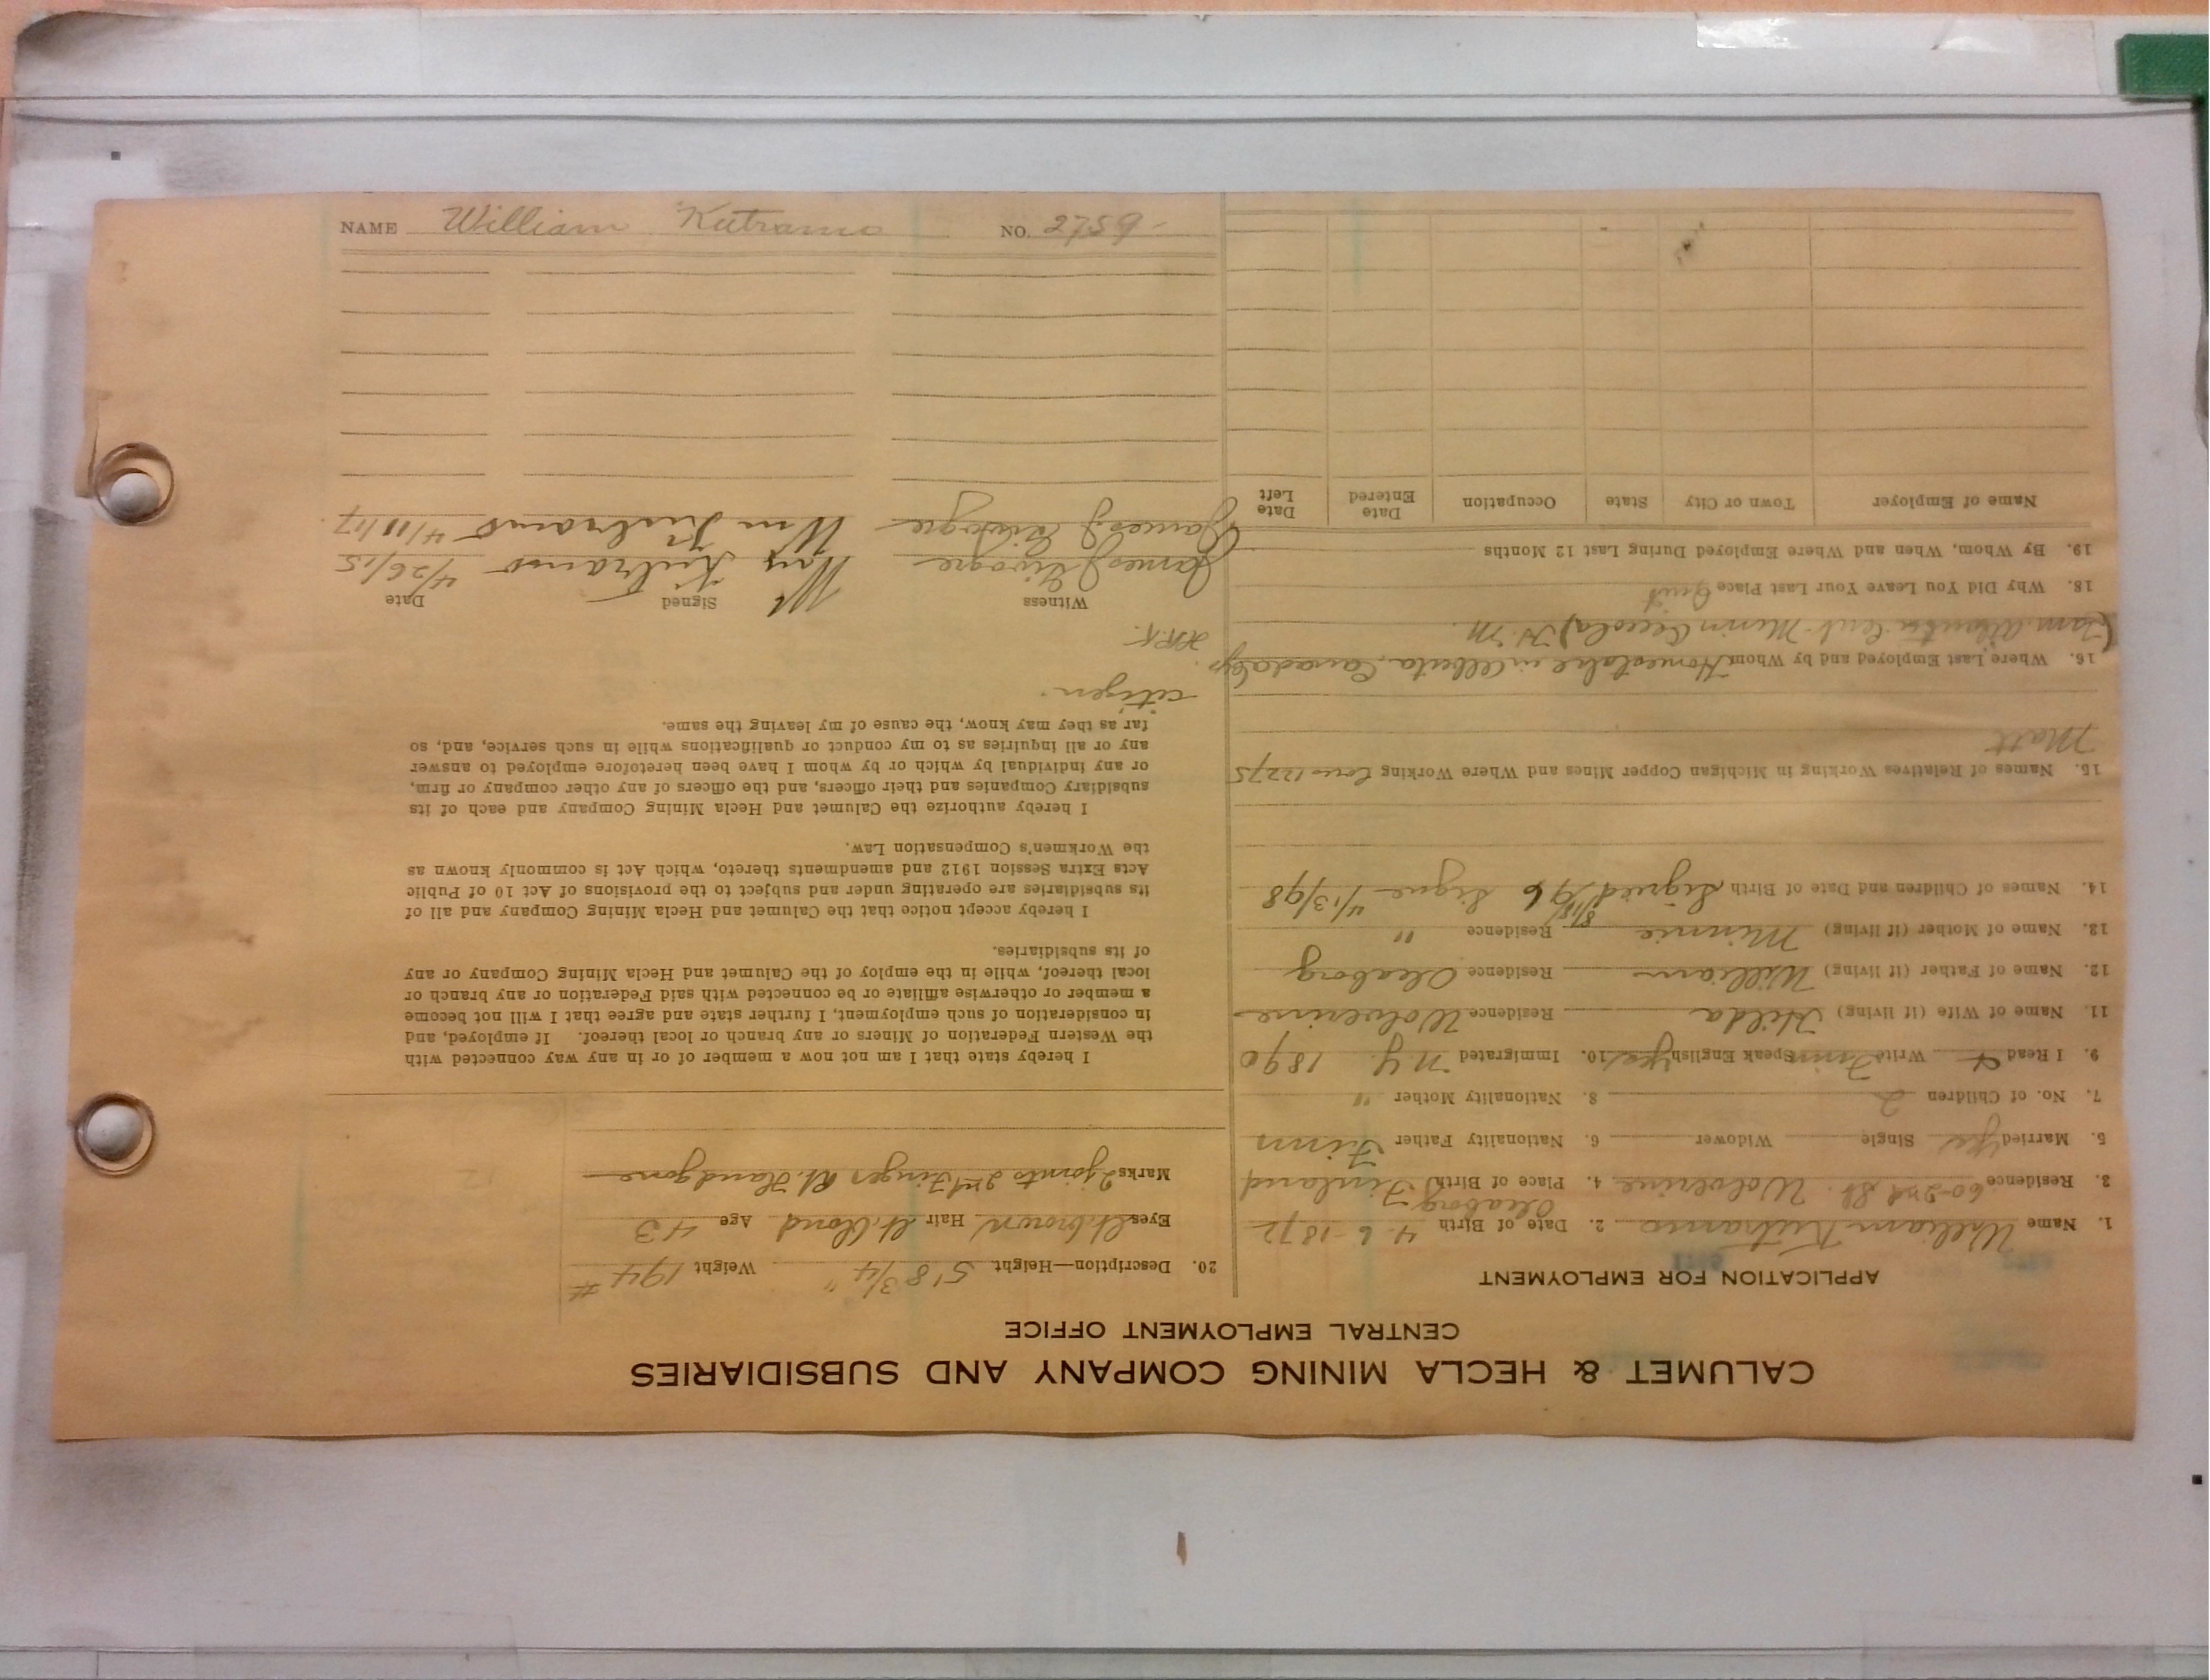 CALUMET & HECLA MINING COMPANY AND SUBSIDIARIES
CENTRAL EMPLOYMENT OFFICE
APPLICATION FOR EMPLOYMENT
1. Name William Kutramo 2. Date of Birth 4-6-1872
3. Residence 60-2nd St. Wolverine 4. Place of Birth Oleaborg Finland
5. Married yes Single Widower 6. Nationality Father Finn
7. No. of Children 2 8. Nationality Mother "
9. I Read & Write Finn Speak English yes 10. Immigrated N.Y. 1890
11. Name of Wife (if living) Hilda Residence Wolverine
12. Name of Father (if living) William Residence Oleaborg
13. Name of Mother (if living) Minnie Residence "
14. Names of Children and Date of Birth Sigrid 8/18/96 Signe 4/13/98
15. Names of Relatives Working in Michigan Copper Mines and Where Working
Matt
16. Where Last Employed and by Whom Homestake in Alberta, Canada
18. Why Did You Leave Your Last Place Quit
19. By Whom, When and Where Employed During Last 12 Months
Name of Employer Town or City State Occupation Date Entered Date Left
20. Description—Height 5' 8 3/4" Weight 194#
Eyes Lt. brown Hair Lt. blond Age 43
Marks 2 joints 2nd Finger Rt. Hand gone
I hereby state that I am not now a member of or in any way connected with
the Western Federation of Miners or any branch or local thereof. If employed, and
in consideration of such employment, I further state and agree that I will not become
a member or otherwise affiliate or be connected with said Federation or any branch or
local thereof, while in the employ of the Calumet and Hecla Mining Company or any
of its subsidiaries.
I hereby accept notice that the Calumet and Hecla Mining Company and all of
its subsidiaries are operating under and subject to the provisions of Act 10 of Public
Acts Extra Session 1912 and amendments thereto, which Act is commonly known as
the Workmen's Compensation Law.
I hereby authorize the Calumet and Hecla Mining Company and each of its
subsidiary Companies and their officers, and the officers of any other company or firm,
or any individual by which or by whom I have been heretofore employed to answer
any or all inquiries as to my conduct or qualifications while in such service, and, so
far as they may know, the cause of my leaving the same.
citizen.
Witness Signed Date
James J 4/26/15
James J Wm Kutramo 4/11/17
NAME William Kutramo NO. 2759-